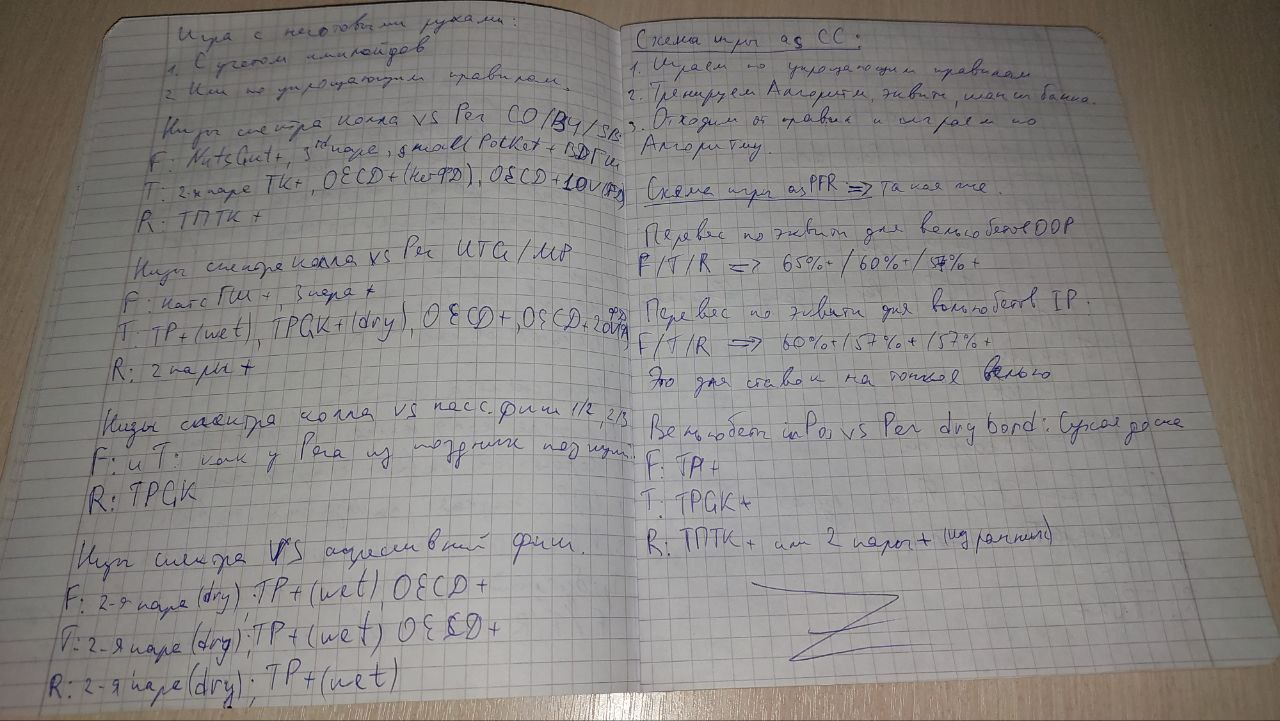 Игра с неготовыми руками:
1. С учетом имплайдов
2. Или по упрощающим правилам.
Низы спектра колла vs Рег CO/BU/SB:
F: NutsGut+, 3rd паре, small Pocket + BDГШ
T: 2-я паре TK+, OESD+(нет ФД), OESD+1OV(FD)
R: ТПТК +
Низы спектра колла vs Рег UTG/MP
F: натс ГШ+, 3 пара +
T: TP+(wet), TPGK+(dry), OESD+, OESD+2OV
R: 2 пары +
Низы спектра колла vs пасс. фиш 1/2, 2/3
F: и T: как у Рега из поздних позиций.
R: TPGK
Низы спектра VS агрессивный фиш.
F: 2-я паре (dry); TP+(wet) OESD+
T: 2-я паре (dry); TP+(wet) OESD+
R: 2-я паре (dry); TP+(wet)
Схема игры as CC:
1. Играем по упрощающим правилам
2. Тренируем Алгоритм, эквити, шансы банка.
3. Отходим от правил и играем по
Алгоритму.
Схема игры as PFR => такая же.
Перевес по эквити для вельюбетов OOP
F/T/R => 65%+ /60%+ /57%+
Перевес по эквити для вельюбетов IP.
F/T/R => 60%+/57%+ /57%+
Это для ставок на тонкое велью
Вельюбеты inPos vs Рег dry bord: Сухая доске
F: TP+
T: TPGK+
R: ТПТК+ или 2 пары+ (из ранних)